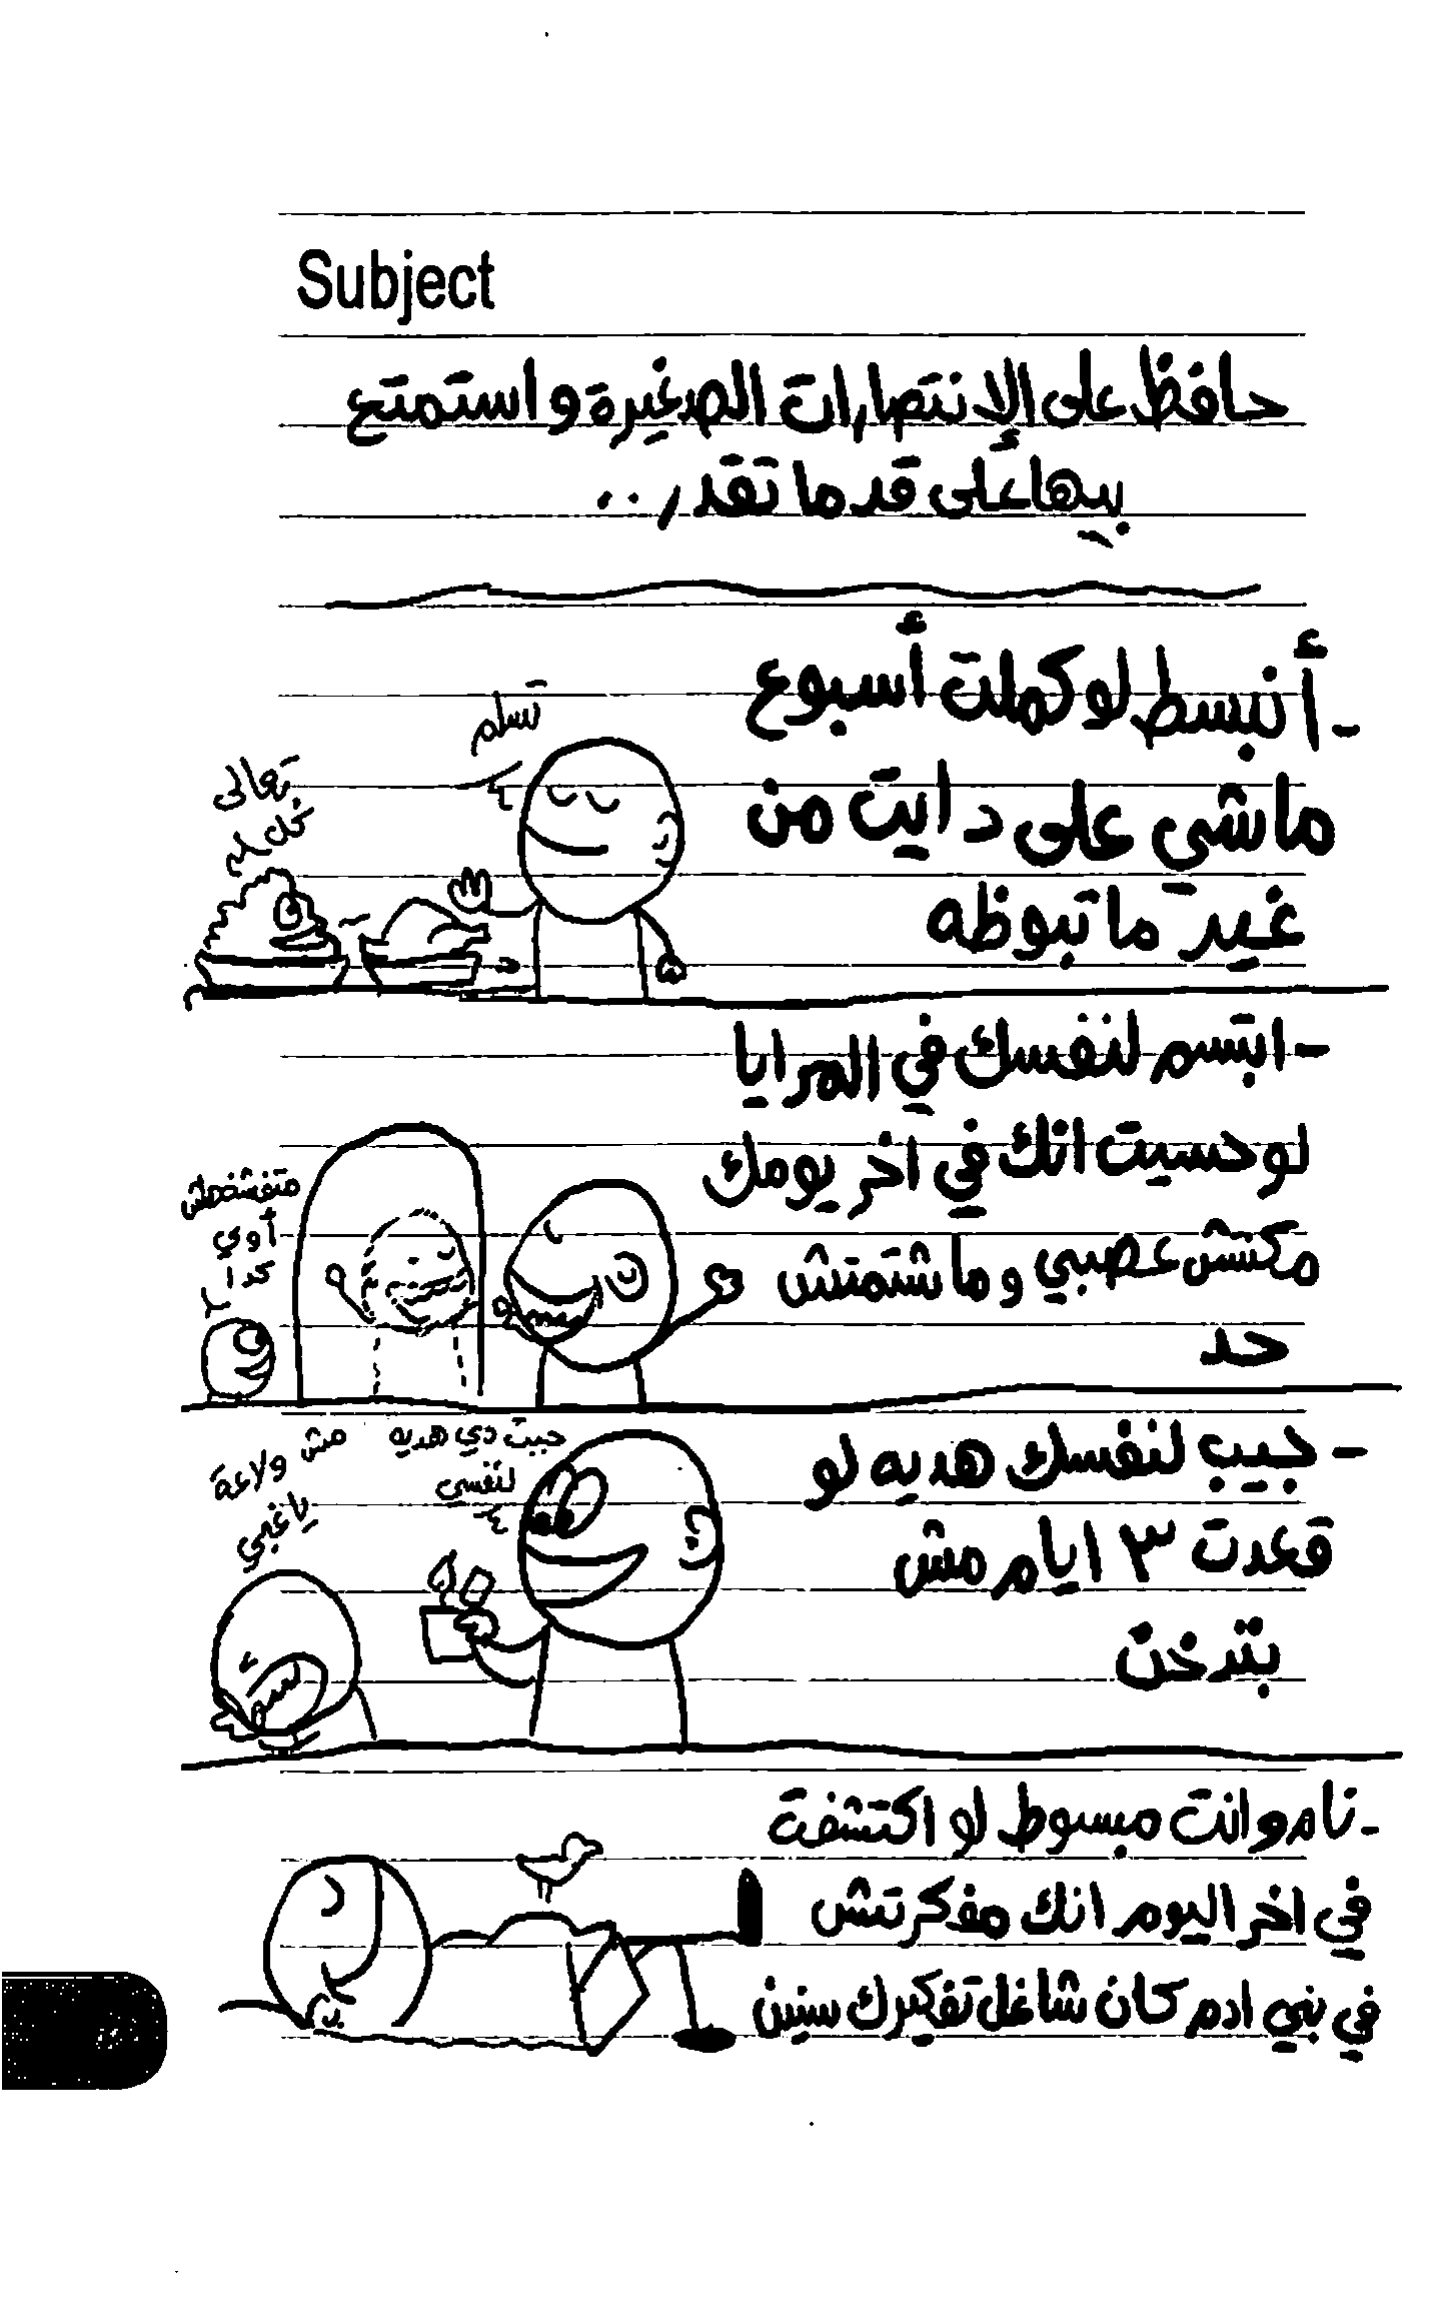 Subject
حافظ على الإنتصارات الصغيرة واستمتع
بيها على قد ما تقدر..
- أنبسط لو كملت أسبوع
ماشي على دايت من
غير ما تبوظه
تسلم
تعالى
كل
- ابتسم لنفسك في المرايا
لو حسيت انك في اخر يومك
مكنتش عصبي وما شتمتش
حد
متفشخهاش
أوي
كدا
- جيب لنفسك هديه لو
قعدت ٣ ايام مش
بتدخن
جبت دي هديه
لنفسي
مش ولاعة
يا غبي
- نام وانت مبسوط لو اكتشفت
في اخر اليوم انك مفكرتش
في بني ادم كان شاغل تفكيرك سنين